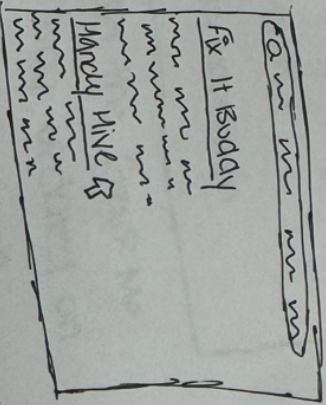 Fix It Buddy
Handy Hive